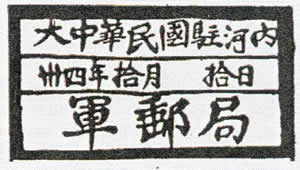 大中華民國駐河内
卅四年拾月　拾日
軍郵局